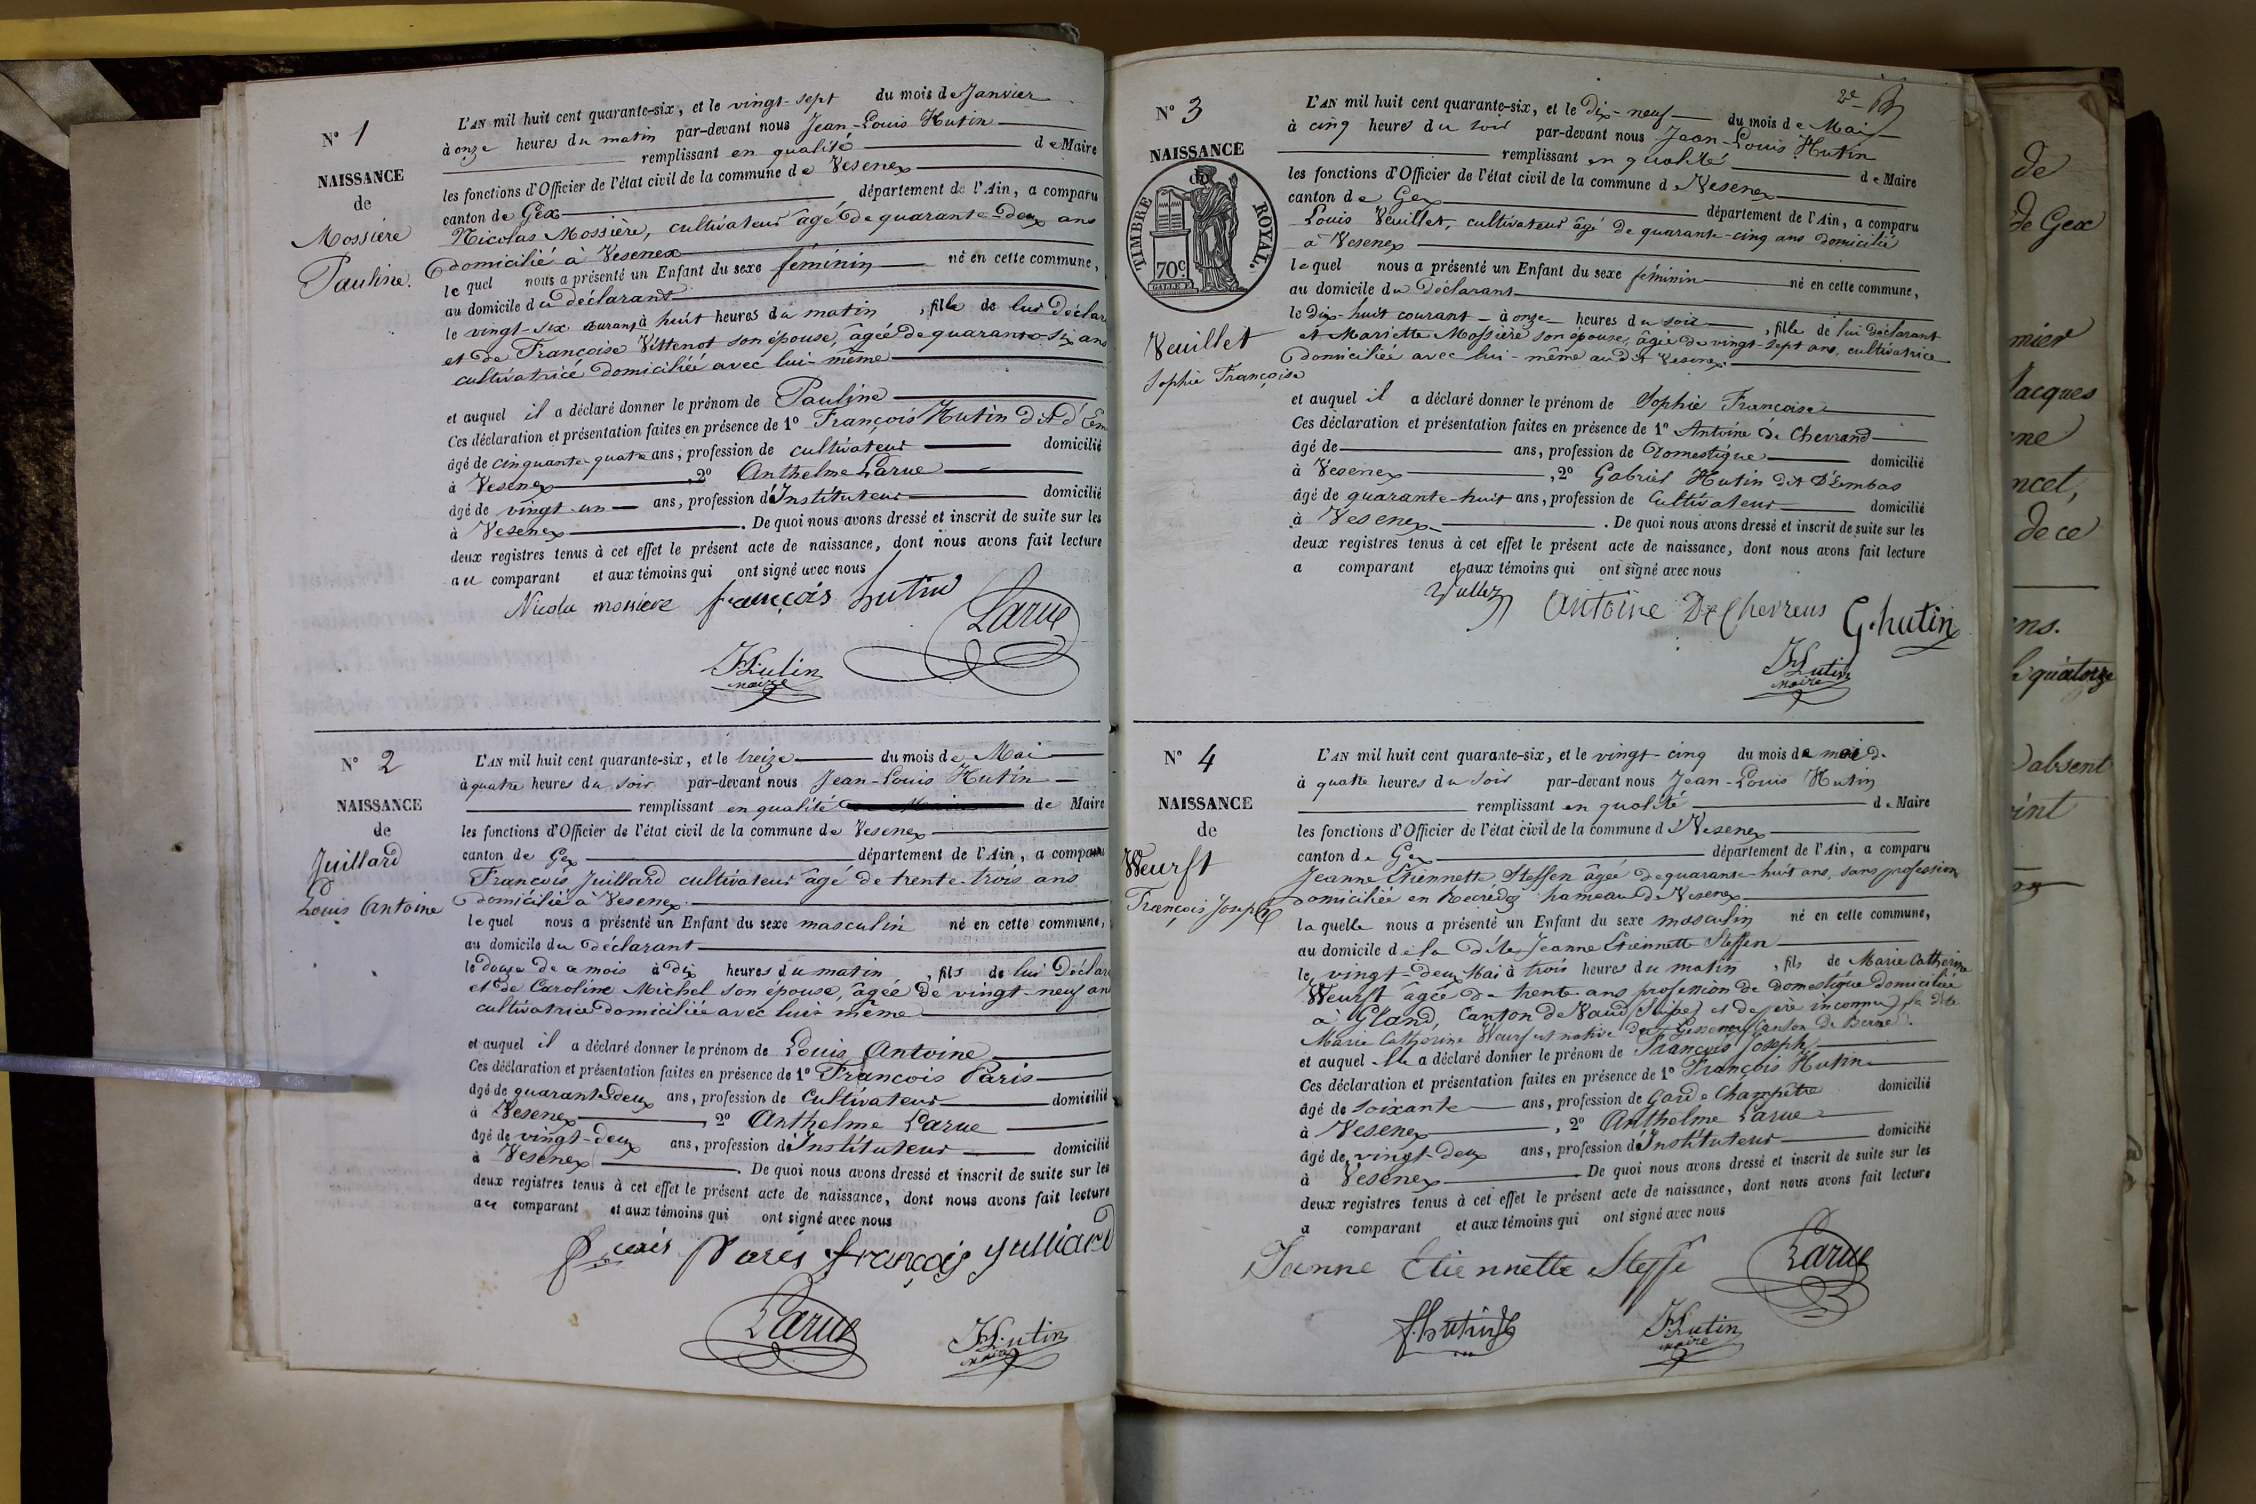 N° 1
NAISSANCE
de
Mossière
Pauline.
L'AN mil huit cent quarante-six, et le vingt-sept du mois de Janvier
à onze heures du matin par-devant nous Jean-Louis Hutin
remplissant en qualité de Maire
les fonctions d'Officier de l'état civil de la commune de Vesenex
canton de Gex département de l'Ain, a comparu
Nicolas Mossière, cultivateur âgé de quarante-deux ans
domicilié à Vesenex
lequel nous a présenté un Enfant du sexe féminin né en cette commune,
au domicile du déclarant
le vingt-six courant à huit heures du matin, fille de lui déclar
et de Françoise Vittenot son épouse, âgée de quarante-six ans
cultivatrice domiciliée avec lui-même
et auquel il a déclaré donner le prénom de Pauline
Ces déclaration et présentation faites en présence de 1° François Hutin dit d'Em
âgé de cinquante-quatre ans, profession de cultivateur domicilié
à Vesenex, 2° Anthelme Larue
âgé de vingt-un ans, profession d'Instituteur domicilié
à Vesenex. De quoi nous avons dressé et inscrit de suite sur les
deux registres tenus à cet effet le présent acte de naissance, dont nous avons fait lecture
au comparant et aux témoins qui ont signé avec nous
Nicolas mossiere françois hutin Larue
JHutin
maire
N° 2
NAISSANCE
de
Juillard
Louis Antoine
L'AN mil huit cent quarante-six, et le treize du mois de Mai
à quatre heures du soir par-devant nous Jean-Louis Hutin
remplissant en qualité de Maire
les fonctions d'Officier de l'état civil de la commune de Vesenex
canton de Gex département de l'Ain, a comparu
François Juillard cultivateur âgé de trente-trois ans
domicilié à Vesenex
lequel nous a présenté un Enfant du sexe masculin né en cette commune,
au domicile du déclarant
le douze de ce mois à dix heures du matin, fils de lui Déclar
et de Caroline Michel son épouse, âgée de vingt-neuf an
cultivatrice domiciliée avec lui même
et auquel il a déclaré donner le prénom de Louis Antoine
Ces déclaration et présentation faites en présence de 1° François Paris
âgé de quarante deux ans, profession de Cultivateur domicilié
à Vesenex, 2° Anthelme Larue
âgé de vingt-deux ans, profession d'Instituteur domicilié
à Vesenex. De quoi nous avons dressé et inscrit de suite sur les
deux registres tenus à cet effet le présent acte de naissance, dont nous avons fait lecture
au comparant et aux témoins qui ont signé avec nous
Parès françois Julliard
Larue JHutin
maire
2e
N° 3
NAISSANCE
de
TIMBRE ROYAL.
70c.
Veuillet
Sophie Françoise
L'AN mil huit cent quarante-six, et le dix-neuf du mois de Mai
à cinq heures du soir par-devant nous Jean-Louis Hutin
remplissant en qualité de Maire
les fonctions d'Officier de l'état civil de la commune de Vesenex
canton de Gex département de l'Ain, a comparu
Louis Veuillet, cultivateur âgé de quarante-cinq ans domicilié
à Vesenex
lequel nous a présenté un Enfant du sexe féminin né en cette commune,
au domicile du Déclarant
le dix-huit courant à onze heures du soir, fille de lui Déclarant
et Mariette Mossière son épouse, âgée de vingt-sept ans, cultivatrice
domiciliée avec lui-même au dit Vesenex
et auquel il a déclaré donner le prénom de Sophie Françoise
Ces déclaration et présentation faites en présence de 1° Antoine de Chevrand
âgé de ans, profession de Domestique domicilié
à Vesenex, 2° Gabriel Hutin dit D'Embas
âgé de quarante-huit ans, profession de Cultivateur domicilié
à Vesenex. De quoi nous avons dressé et inscrit de suite sur les
deux registres tenus à cet effet le présent acte de naissance, dont nous avons fait lecture
a comparant et aux témoins qui ont signé avec nous
Antoine De Chevrens G. hutin
JHutin
maire
N° 4
NAISSANCE
de
Weurst
François Joseph
L'AN mil huit cent quarante-six, et le vingt-cinq du mois de mai
à quatre heures du soir par-devant nous Jean-Louis Hutin
remplissant en qualité de Maire
les fonctions d'Officier de l'état civil de la commune de Vesenex
canton de Gex département de l'Ain, a comparu
Jeanne Etiennette Steffen âgée de quarante-huit ans, sans profession
domiciliée en hameau de Vesenex
laquelle nous a présenté un Enfant du sexe masculin né en cette commune,
au domicile de la dite Jeanne Etiennette Steffen
le vingt-deux Mai à trois heures du matin, fils de Marie Catherine
Weurst âgée de trente ans profession de domestique domiciliée
à Gland, Canton de Vaud (Suisse) et de père inconnu, la dite
Marie Catherine Weurst native de Gessenay Canton de Berne.
et auquel elle a déclaré donner le prénom de François Joseph
Ces déclaration et présentation faites en présence de 1° François Hutin
âgé de soixante ans, profession de Garde Champêtre domicilié
à Vesenex, 2° Anthelme Larue
âgé de vingt-deux ans, profession d'Instituteur domicilié
à Vesenex. De quoi nous avons dressé et inscrit de suite sur les
deux registres tenus à cet effet le présent acte de naissance, dont nous avons fait lecture
a comparant et aux témoins qui ont signé avec nous
Janne Etiennette Steffe Larue
f. hutin JHutin
maire
de
de Gex
Jacques
de ce
quatorze
absent